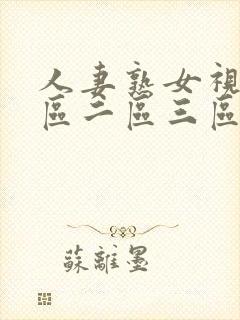 人妻熟女視
區二區三區
蘇離墨